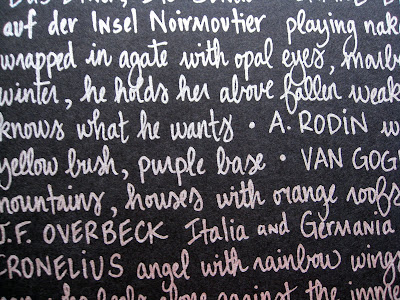 auf der Insel Noirmoutier playing nak
wrapped in agate with opal eyes, marb
winter, he holds her above fallen weak
knows what he wants · A. RODIN w
yellow bush, purple base · VAN GOG
mountains, houses with orange roofs
J.F. OVERBECK Italia and Germania
CRONELIUS angel with rainbow wings
against the imme